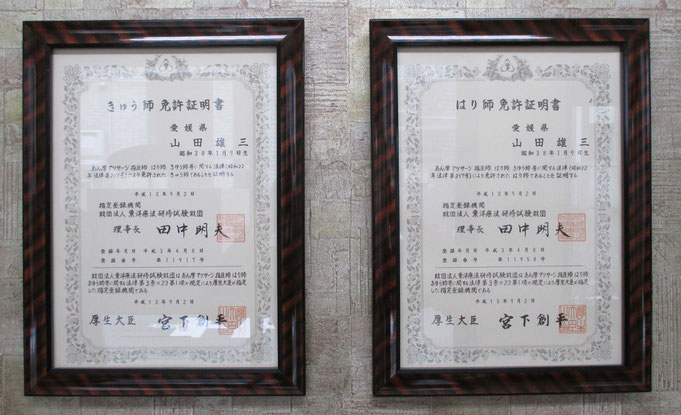 きゅう師 免許証明書
愛媛県
山田雄三
昭和38年1月9日生
あん摩マツサージ指圧師 はり師 きゆう師等に関する法律(昭和22
年法律第217号)により免許された きゆう師であることを証明する
平成10年9月2日
指定登録機関
財団法人 東洋療法研修試験財団
理事長 田中明夫
登録年月日 平成3年4月8日
登録番号 第11917号
財団法人東洋療法研修試験財団はあん摩マツサージ指圧師 はり師
きゆう師等に関する法律第3条の23第1項の規定により厚生大臣が指定
した指定登録機関である
平成10年9月2日
厚生大臣 宮下創平
はり師 免許証明書
愛媛県
山田雄三
昭和38年1月9日生
あん摩マツサージ指圧師 はり師 きゆう師等に関する法律(昭和22
年法律第217号)により免許された はり師であることを証明する
平成10年9月2日
指定登録機関
財団法人 東洋療法研修試験財団
理事長 田中明夫
登録年月日 平成3年4月8日
登録番号 第11959号
財団法人東洋療法研修試験財団はあん摩マツサージ指圧師 はり師
きゆう師等に関する法律第3条の23第1項の規定により厚生大臣が指定
した指定登録機関である
平成10年9月2日
厚生大臣 宮下創平